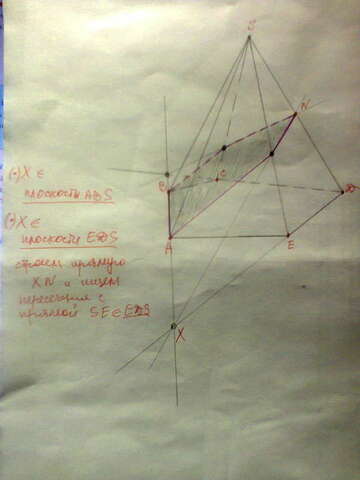 S
N
B
C
D
A
E
X
(·)X ∈
плоскости ABS
(·)X ∈
плоскости EDS
строим прямую
XN и ищем
пересечение с
прямой SE ∈ EDS